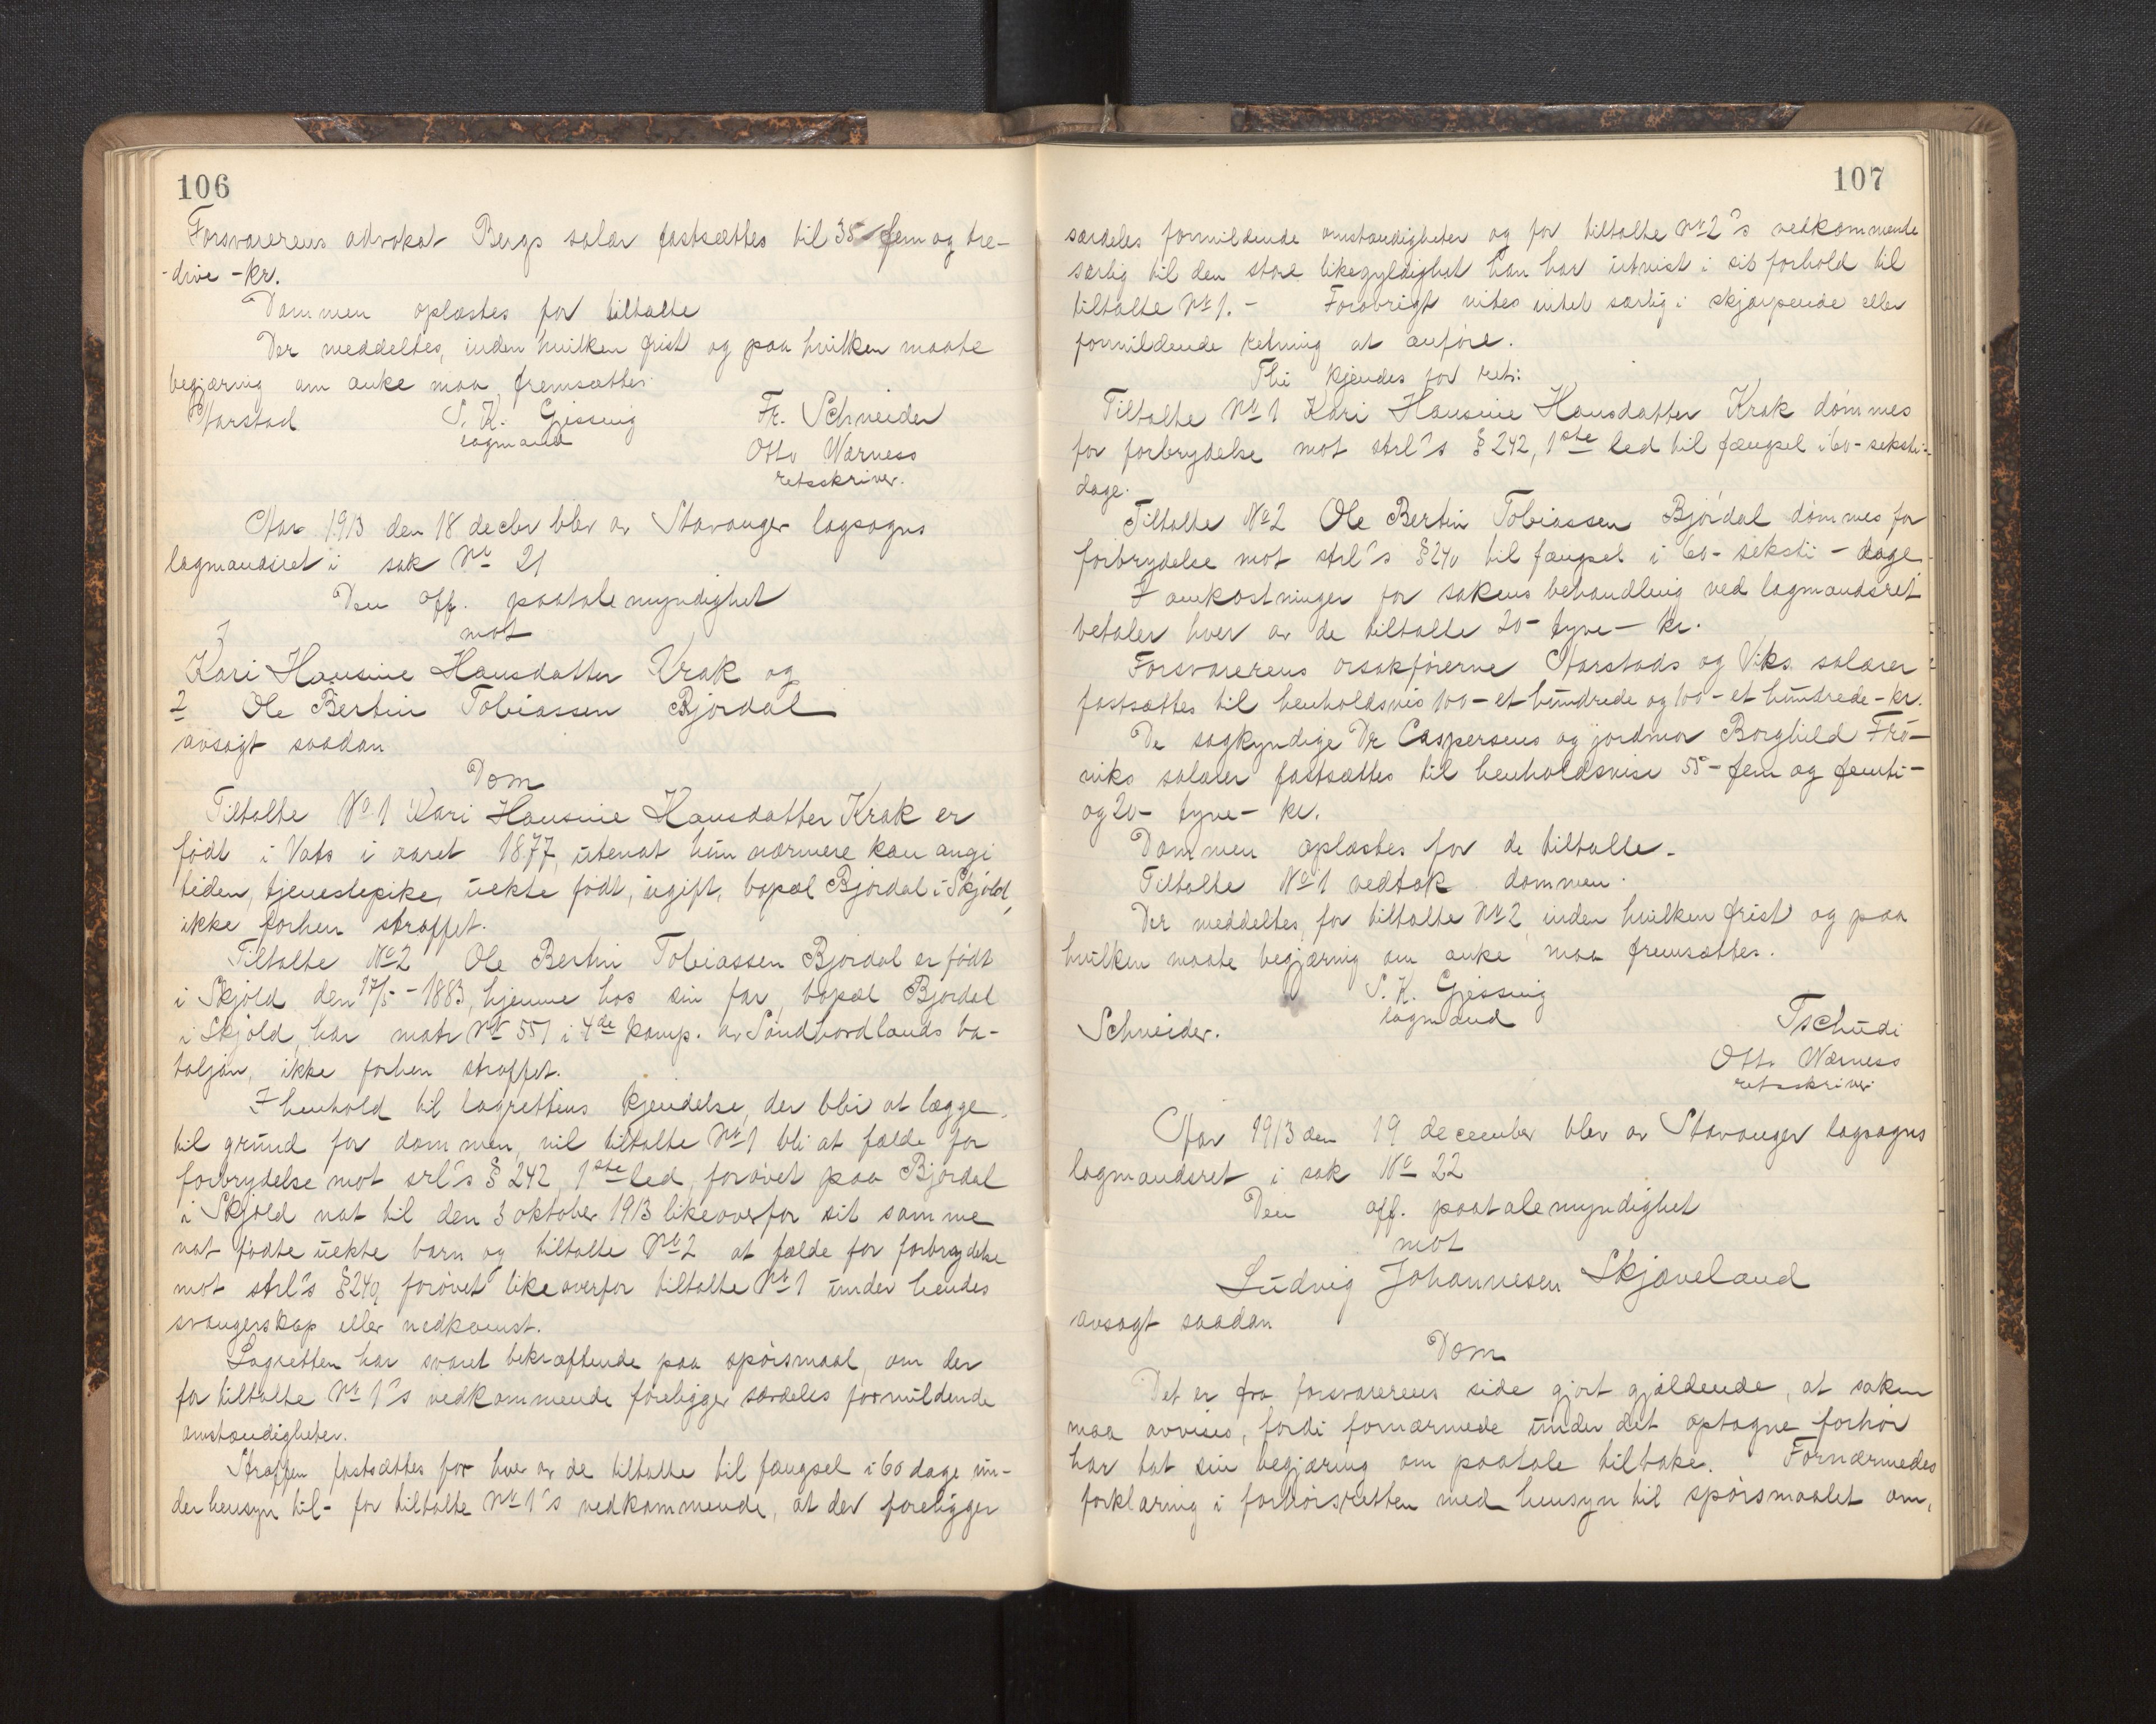 106
Forsvarerens advokat Bergs salær fastsættes til 35 fem og tre-
-dive - kr.
Dommen oplæstes for tiltalte
Der meddeltes, inden hvilken frist og paa hvilken maate
begjæring om anke maa fremsættes.
Aarstad S. K. Giessing Fr. Schneider
lagmand Otto Wærness
retsskriver.
Aar 1913 den 18 decbr blev av Stavanger lagsogns
lagmandsret i sak No 21
Den off. paatalemyndighet
mot
1
Kari Hansine Hansdatter Krak og
2 Ole Bertin Tobiassen Bjørdal
avsagt saadan
Dom
Tiltalte No 1 Kari Hansine Hansdatter Krak er
født i Vats i aaret 1877, utenat hun nærmere kan angi
tiden, tjenestepike, uekte født, ugift, bopæl Bjørdal i Skjold,
ikke forhen straffet.
Tiltalte No 2 Ole Bertin Tobiassen Bjørdal er født
i Skjold den 17/5 - 1883, hjemme hos sin far, bopæl Bjørdal
i Skjold, har matr No 551 i 4de komp. av Søndhordlands ba-
taljon, ikke forhen straffet.
I henhold til lagrettens kjendelse, der blir at lægge
til grund for dommen, vil tiltalte No 1 bli at fælde for
forbrydelse mot srl's § 242, 1ste led, forøvet paa Bjørdal
i Skjold nat til den 3 oktober 1913 likeoverfor sit samme
nat fødte uekte barn og tiltalte No 2 at fælde for forbrydelse
mot strl's § 240, forøvet likeoverfor tiltalte No 1 under hendes
svangerskap eller nedkomst.
Lagretten har svaret bekræftende paa spørsmaal, om der
for tiltalte No 1's vedkommende foreligger særdeles formildende
omstændigheter.
Straffen fastsættes for hver av de tiltalte til fængsel i 60 dage un-
der hensyn til - for tiltalte No 1's vedkommende, at der foreligger
107
særdeles formildende omstændigheter og for tiltalte No 2's vedkommende
særlig til den store likegyldighet han har utvist i sit forhold til
tiltalte No 1. - Forøvrigt vites intet særlig i skjærpende eller
formildende retning at anføre.
Thi kjendes for ret:
Tiltalte No 1 Kari Hansine Hansdatter Krak dømmes
for forbrydelse mot strl's § 242, 1ste led til fængsel i 60 - seksti -
dage.
Tiltalte No 2 Ole Bertin Tobiassen Bjørdal dømmes for
forbrydelse mot strl's § 240 til fængsel i 60 - seksti - dage
I omkostninger for sakens behandling ved lagmandsret
betaler hver av de tiltalte 20 - tyve - kr.
Forsvarerens orsakførerne Aarstads og Viks salærer
fastsættes til henholdsvis 100 - et hundrede og 100 - et hundrede - kr.
De sagkyndige Dr Caspersens og jordmor Borghild Frø-
viks salærer fastsættes til henholdsvise 55 - fem og femti -
og 20 - tyve - kr.
Dommen oplæstes for de tiltalte.
Tiltalte No 1 vedtok dommen.
Der meddeltes, for tiltalte No 2, inden hvilken frist og paa
hvilken maate begjæring om anke maa fremsættes.
S. K. Giessing
Schneider. lagmand Tschudi
Otto Wærness
retsskriver.
Aar 1913 den 19 december blev av Stavanger lagsogns
lagmandsret i sak No 22
Den off. paatalemyndighet
mot
Ludvig Johannesen Skjæveland
avsagt saadan
Dom
Det er fra forsvarerens side gjort gjældende, at saken
maa avvises, fordi fornærmede under det optagne forhør
har tat sin begjæring om paatale tilbake. Fornærmedes
forklaring i forhørsretten med hensyn til spørsmaalet om,